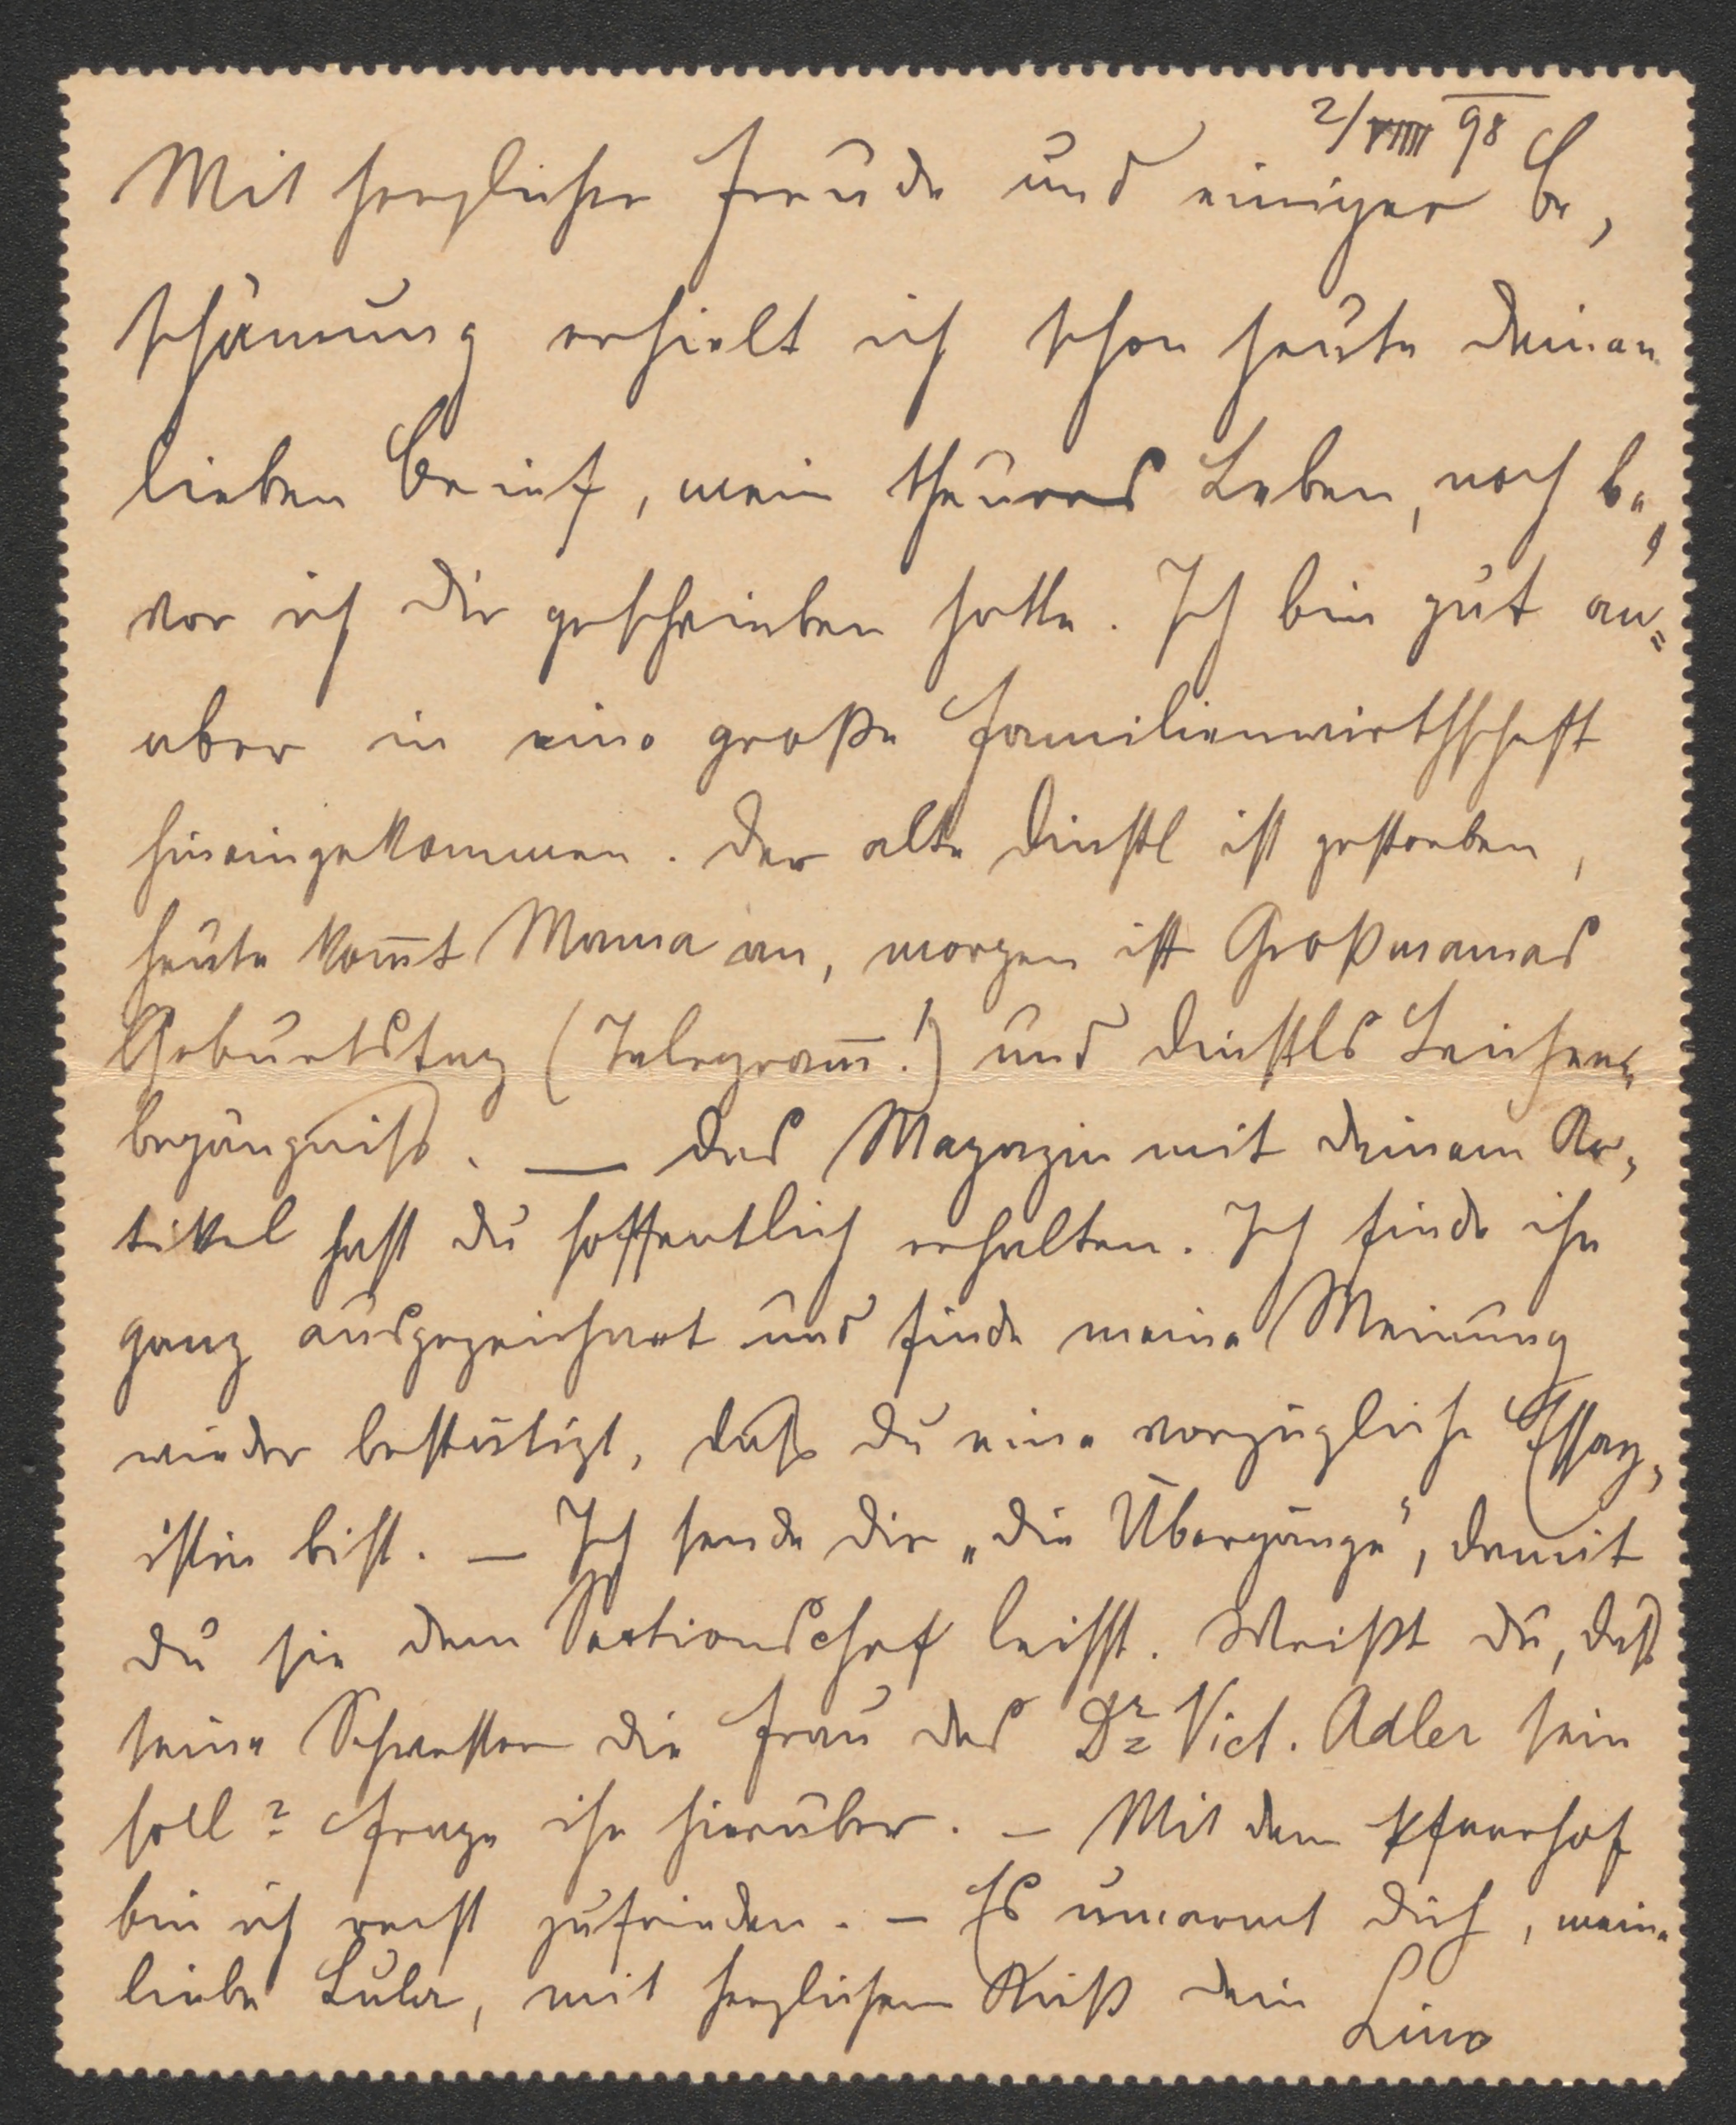 2/VIIII 98
Mit herzlicher Freude und einiger Be,
schämung erhielt ich schon heute deinen
lieben Brief, mein theures Leben, noch be,
vor ich dir geschrieben hatte. Ich bin gut an=
aber in eine große Familienwirthschaft
hineingekommen. Der alte Dinstl ist gestorben,
heute kom̅t Mama an, morgen ist Großmamas
Geburtstag (Telegram̅!) und Dinstls Leichen=
begängniß. — Das Magazin mit deinem Ar,
tikel hast du hoffentlich erhalten. Ich finde ihn
ganz ausgezeichnet und finde meine Meinung
wieder bestätigt, daß du eine vorzügliche Essay,
istin bist. — Ich sende dir „die Übergänge“, damit
du sie dem Sectionschef leihst. Weißt du, daß
seine Schwester die Frau des Dr Vict. Adler sein
soll? Frage ihn hierüber. — Mit dem Pfarrhof
bin ich recht zufrieden. — Es umarmt dich, meine
liebe Luler, mit herzlichem Kuß dein
Lino